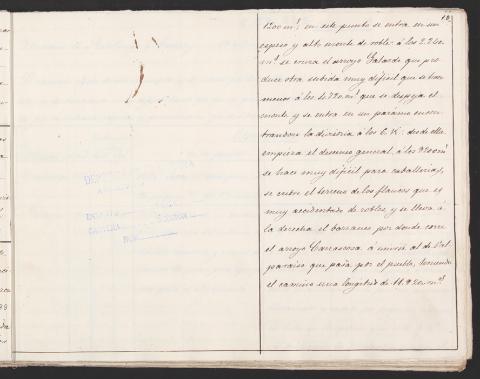 18
1200 m.^s en este punto se entra en un
espeso y alto monte de roble: á los 2.240
m.^s se cruza el arroyo que pro
duce otra subida muy dificil que se hace
menos á los 4.720 m.^s que se despeja el
monte y se entra en un paramo encon
trandose la divisoria á los 6 K.: desde ella
empieza el descenso general, á los 9200 m.^s
se hace muy dificil para caballerias,
se cubre el terreno de los flancos que es
muy accidentado de robles y se lleva á
la derecha el barranco por donde corre
el arroyo Carrascosa, á unirse al de Val
paraiso que pasa por el pueblo, teniendo
el camino una longitud de 11.920 m.^s